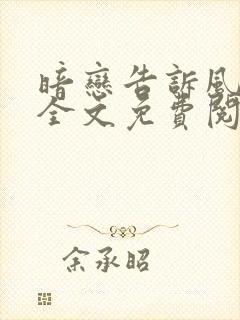 暗戀告訴風
全文免費閱
余承昭